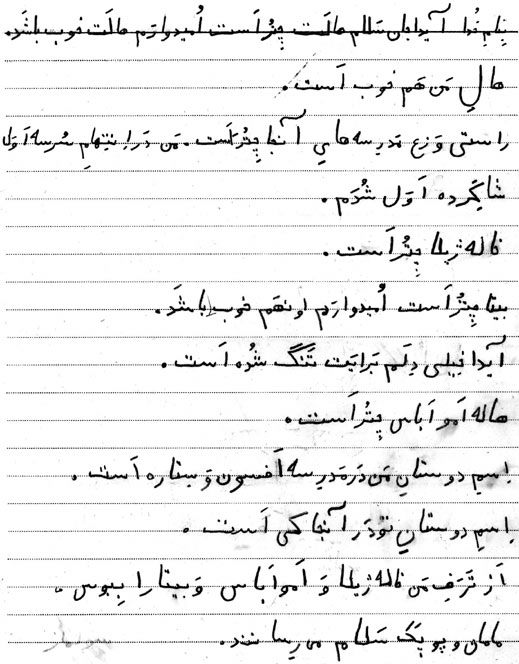 بِنامِ خُدا آیداجان سَلام حالَت چِتُر اَست اُمیدوارَم حالَت خوب باشَد.
حالِ مَن هَم خوب اَست.
راستی وَزعِ مَدرِسه هایِ آنجا چِتُر اَست. مَن دَر اِمتِهامِ سُرسه اَوَل
شاگِرده اَوَل شُدَم.
خاله ژیلا چِتُر اَست.
بیتا چِتُر اَست اُمیدوارَم اونهَم خوب باشَد.
آیدا خیلی دِلَم بَرایَت تَنگ شُده اَست.
حاله اَمو اَباس چِتُر اَست.
اِسمِ دوستانِ مَن دَر مَدرِسه اَفسون وَ ستاره اَست.
اِسمِ دوستانِ تو دَر آنجا کی اَست.
اَز تَرَفِ مَن خاله ژیلا وَ اَمو اَباس وَ بیتا را بِبوس.
مامان و پوپَک سَلام می رِسانند.